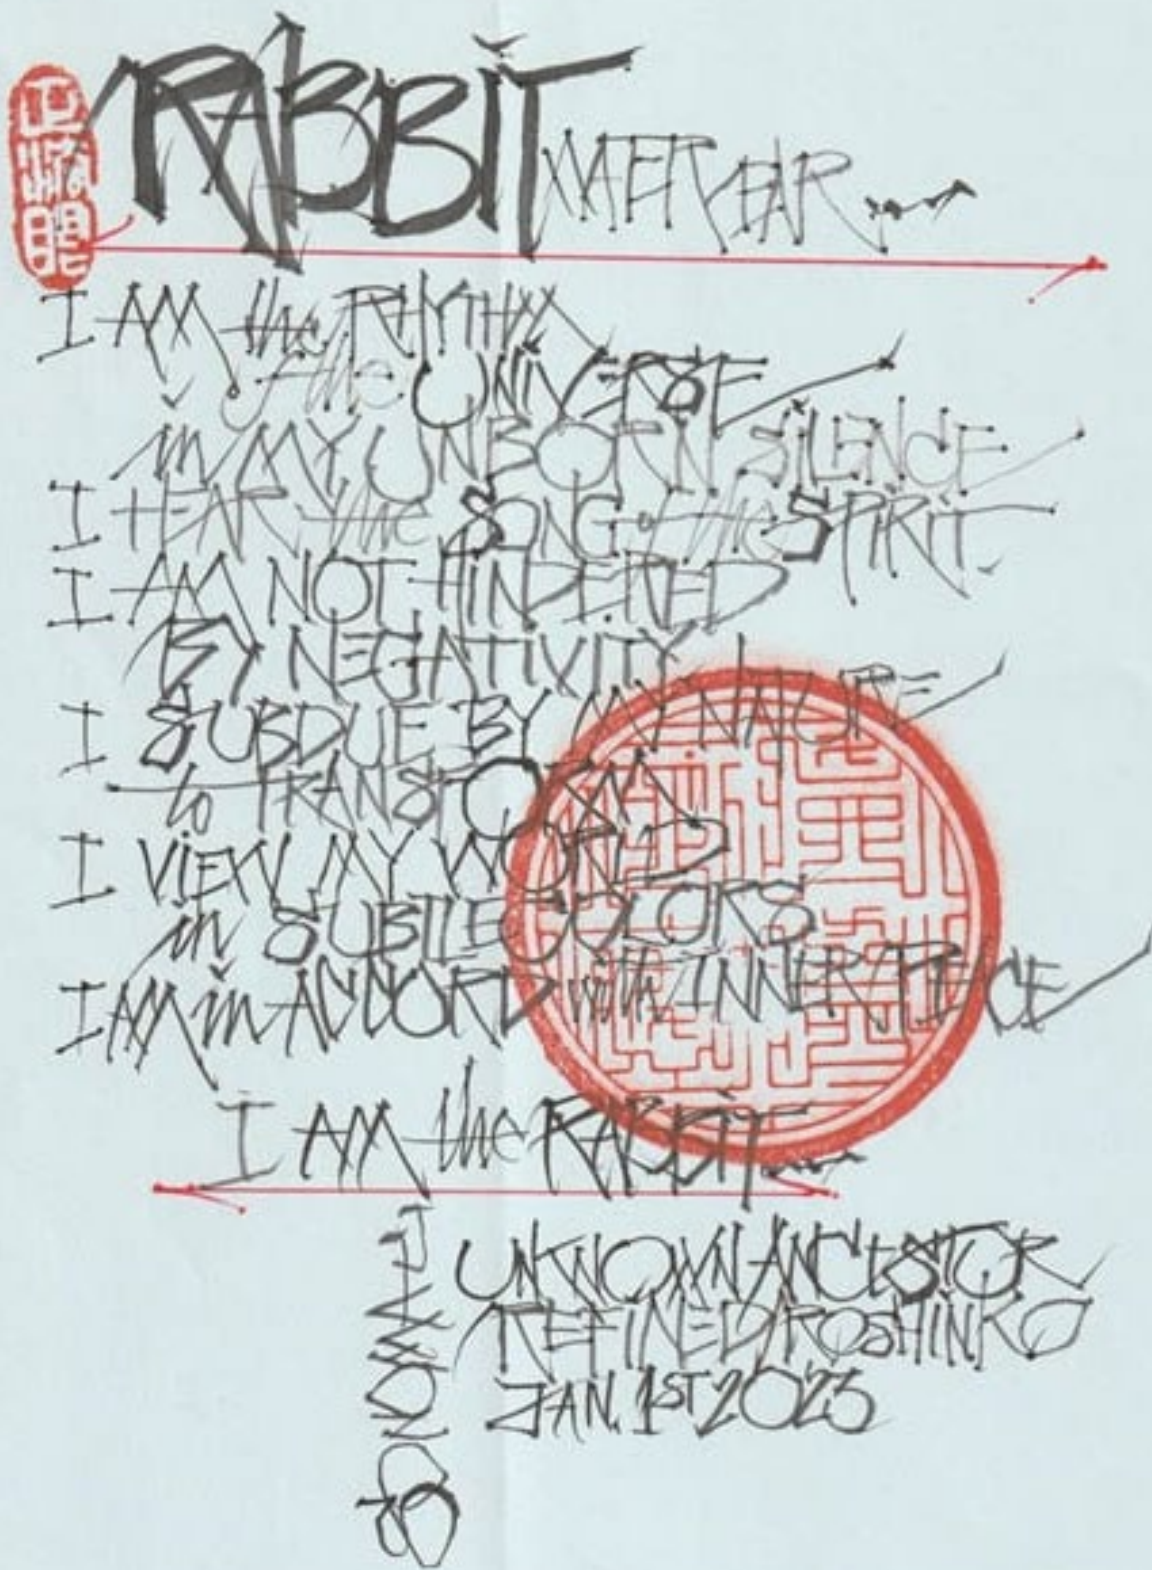 RABBIT WATER YEAR...
I AM the RHYTHM
of the UNIVERSE
in MY UNBORN SILENCE
I HEAR the SONG of the SPIRIT
I AM NOT HINDERED
BY NEGATIVITY
I SUBDUE BY MY NATURE
to TRANSFORM
I VIEW MY WORLD
in SUBTLE COLORS
I AM in ACCORD with INNER PEACE
I AM the RABBIT...
UNKNOWN ANCESTOR
REFINED/ROSHINKO
JAN. 1ST 2023